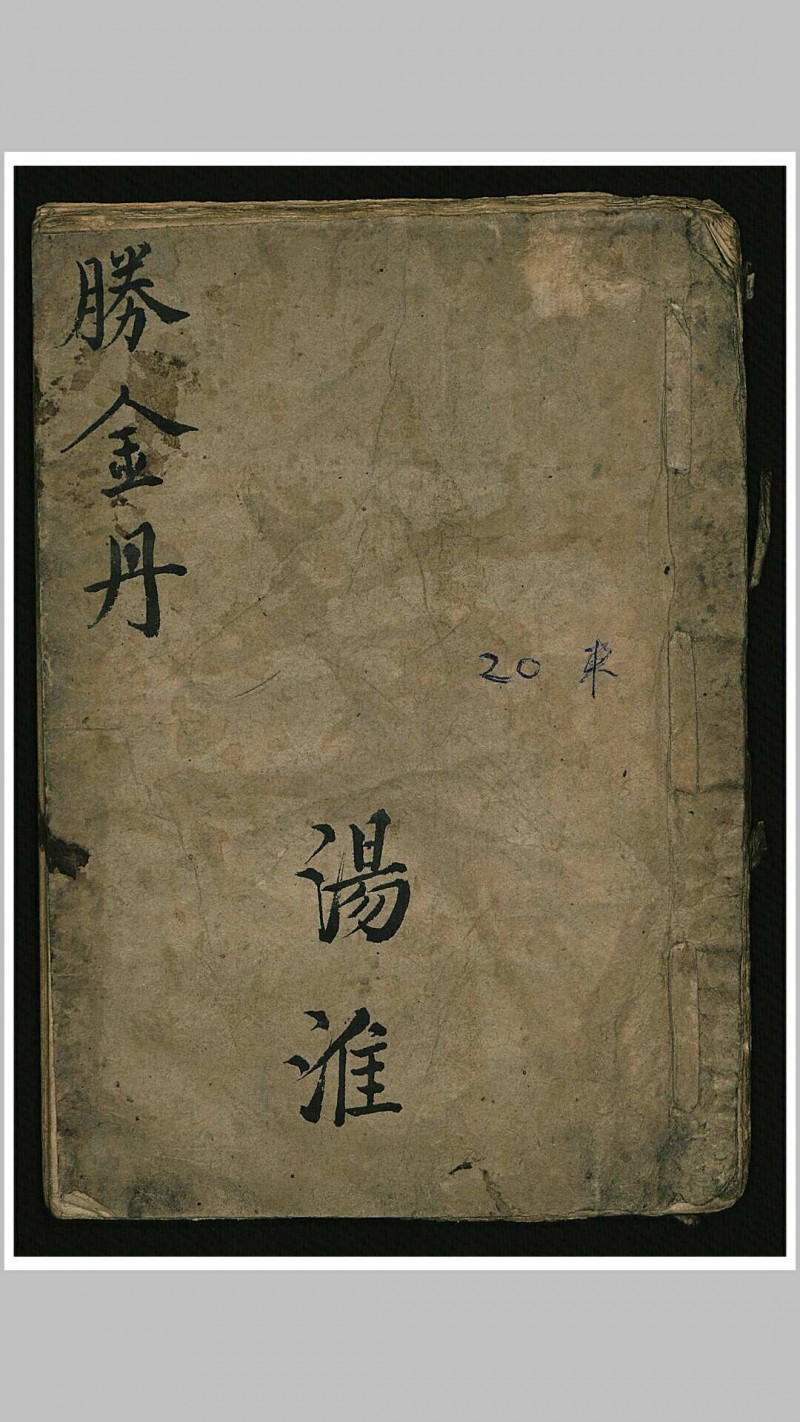 勝金丹
20 来
湯淮